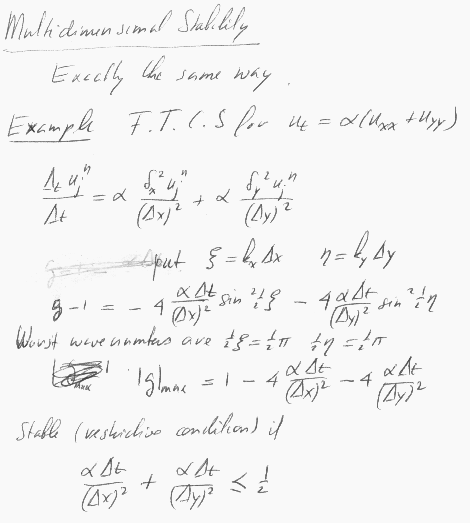 Multidimensional Stability
Exactly the same way.
Example F.T.C.S for u_t = α(u_xx + u_yy)
Δ_t u_j^n / Δt = α δ_x^2 u_j^n / (Δx)^2 + α δ_y^2 u_j^n / (Δy)^2
put ξ = k_x Δx η = k_y Δy
g - 1 = - 4 αΔt / (Δx)^2 sin^2 ½ξ - 4 αΔt / (Δy)^2 sin^2 ½η
Worst wave numbers are ½ξ = ½π ½η = ½π
|g|max = 1 - 4 αΔt / (Δx)^2 - 4 αΔt / (Δy)^2
Stable (restrictive condition) if
αΔt / (Δx)^2 + αΔt / (Δy)^2 ≤ ½